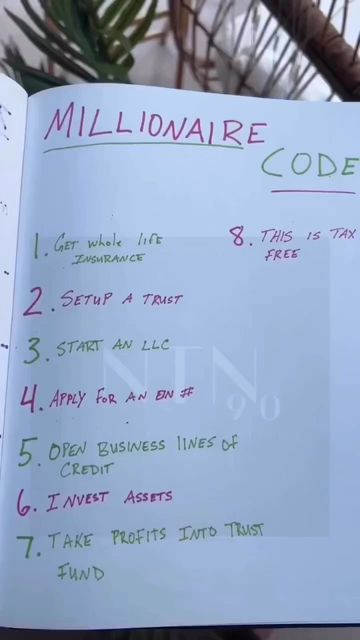 MILLIONAIRE
CODE
1. GET whole life
INSURANCE
2. SETUP A TRUST
3. START AN LLC
4. APPLY FOR AN EIN #
5. OPEN BUSINESS LINES OF
CREDIT
6. INVEST ASSETS
7. TAKE PROFITS INTO TRUST
FUND
8. THIS IS TAX
FREE
NTN
90